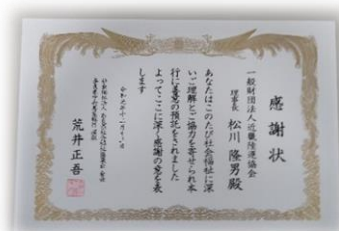 感謝状
一般財団法人近畿陸運協会
理事長 松川 隆男殿
あなたはこのたび社会福祉に深
いご理解とご協力を寄せられ本
行に善意の預託をされました
よってここに深く感謝の意を表
します
荒井正吾